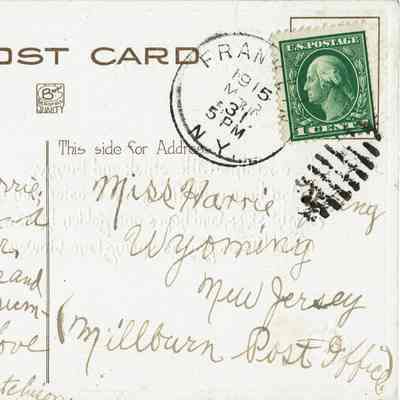 OST CARD
FRAN
1915
MAR
31
5 PM
N.Y.
U.S. POSTAGE
1 CENT
QUALITY
This side for Addre
Miss Harrie ng
Wyoming
New Jersey
(Millburn Post Office
rrie,
d
r,
and
um-
ove
tchison